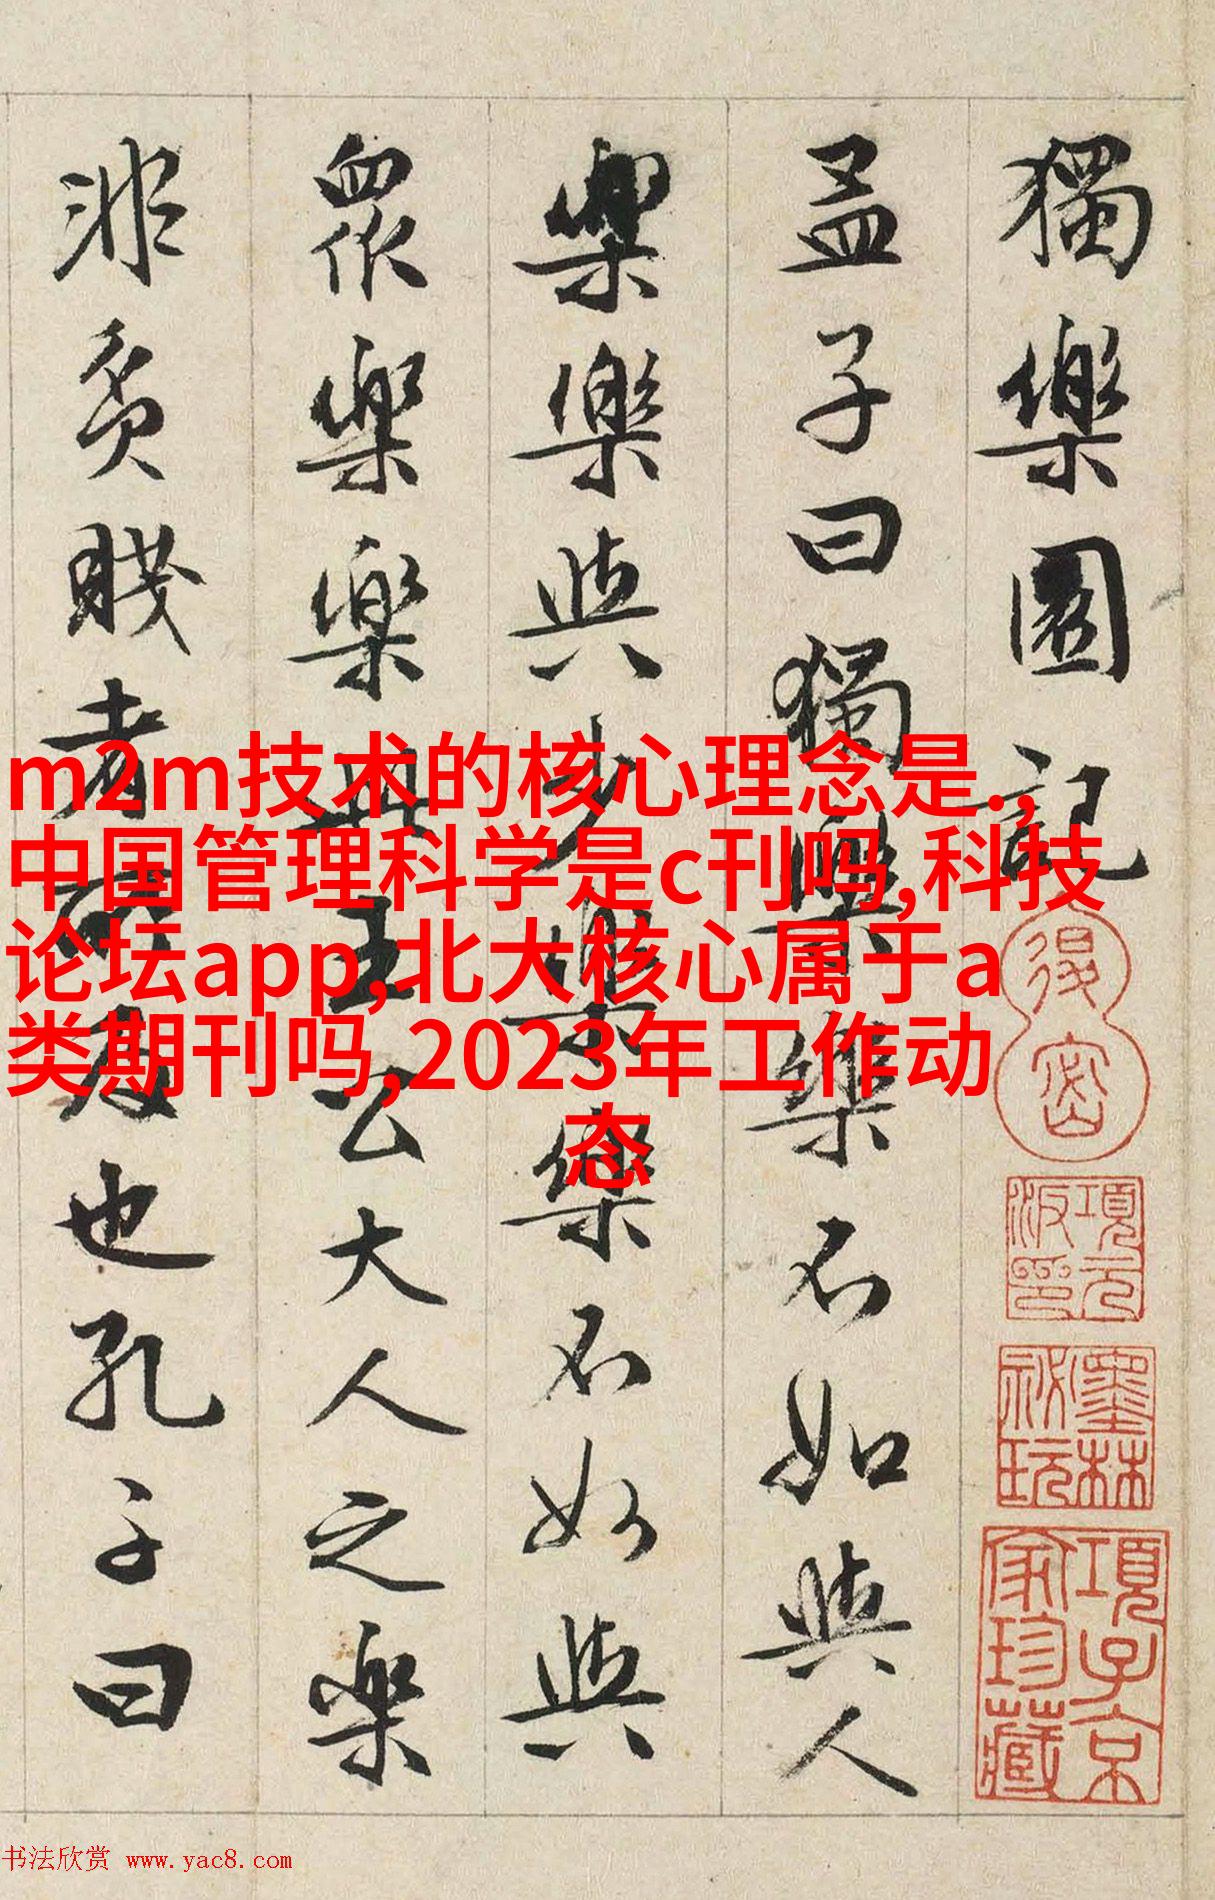 獨樂園記
孟子曰獨樂樂不如與人
樂樂與少樂樂不如與
衆樂樂此王公大人之樂
非貧賤者所及也孔子曰
m2m技术的核心理念是.,
中国管理科学是c刊吗,科技
论坛app,北大核心属于a
类期刊吗,2023年工作动
态
項元汴印
墨林祕玩
項子京家珍藏
书法欣赏 www.yac8.com